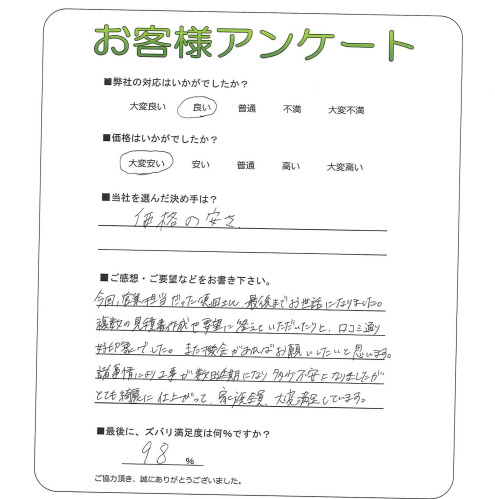 お客様アンケート
■弊社の対応はいかがでしたか？
大変良い 良い 普通 不満 大変不満
■価格はいかがでしたか？
大変安い 安い 普通 高い 大変高い
■当社を選んだ決め手は？
価格の安さ
■ご感想・ご要望などをお書き下さい。
今回、営業担当だった 最後までお世話になりました。
複数の見積書作成や要望に答えていただいたりと、口コミ通り
好印象でした。また機会があればお願いしたいと思います。
諸事情により工事が数回延期になり 少々不安になりましたが
とても綺麗に仕上がって、家族全員、大変満足しています。
■最後に、ズバリ満足度は何％ですか？
98 ％
ご協力頂き、誠にありがとうございました。